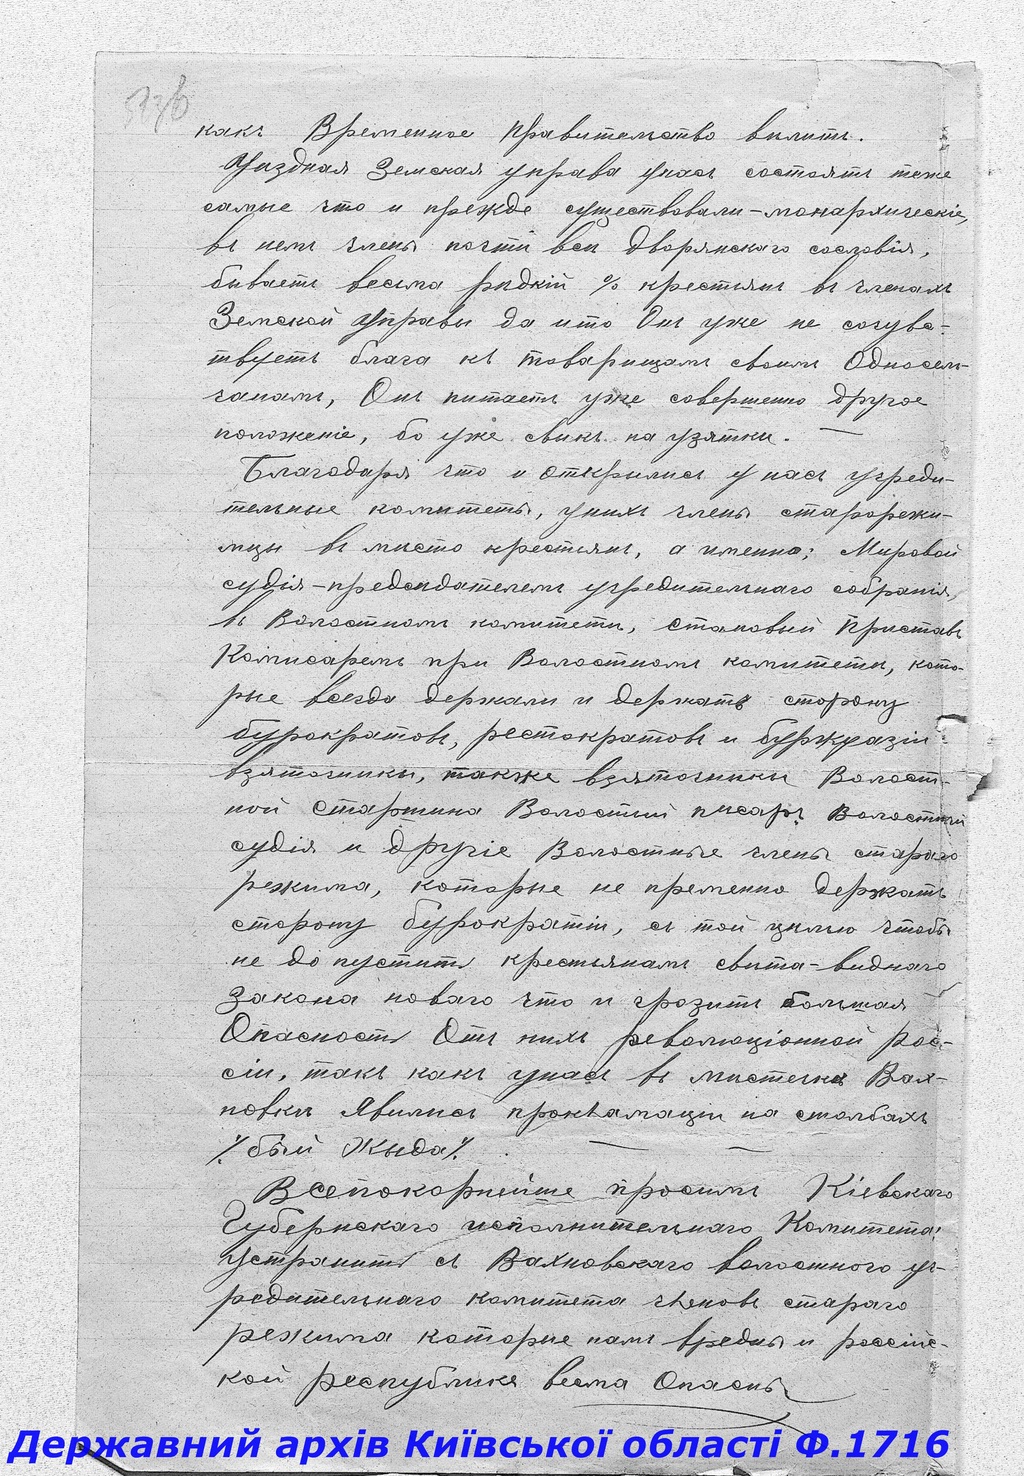 какъ Временное правительство велитъ.
Уѣздная Земская управа унасъ состоятъ теже
самые что и прежде существовали - монархическіе,
въ немъ члены почти всѣ дворянскаго сословія,
бываетъ весьма рѣдкій % крестьянъ въ членахъ
Земской Управы да и то Онъ уже не сочувс-
твуетъ блага къ товарищамъ своимъ Односель-
чанамъ, Онъ питаетъ уже совершенно другое
положеніе, бо уже свикъ на узятки. —
Благодаря что и открылись у насъ учреди-
тельные комитеты, унихъ члены старорежи-
мцы въ мисто крестьянъ, а именно; Мировой
судія - предсидателемъ учредительнаго собранія,
въ Волостномъ комитети, становый Приставъ
Комисаромъ при Волостномъ комитети, кото-
рые всегда держали и держатъ сторону
бурократовъ, рестократовъ и буржуазіи
взяточники, также взяточники Волост-
ной Старшина Волостный писарь Волостный
судія и другіе Волостные члены стараго
режима, которые не пременно держатъ
сторону бурократіи, съ той целью чтобы
не допустить крестьянамъ свита-виднаго
Закона новаго что и грозитъ большая
Опасность Отъ нихъ революціонной Рос-
сіи, такъ какъ унасъ въ мистечкѣ Вах-
новки Явились прокламаціи на столбахъ
% бый Жыда %. — —
Всепокорнейше просимъ Кіевскаго
Губернскаго исполнительнаго Комитета
устранить съ Вахновскаго волостного уч-
редительнаго комитета членовъ стараго
режима которые намъ вредны и россійс-
кой республике весма Опасны
Державний архів Київської області Ф.1716